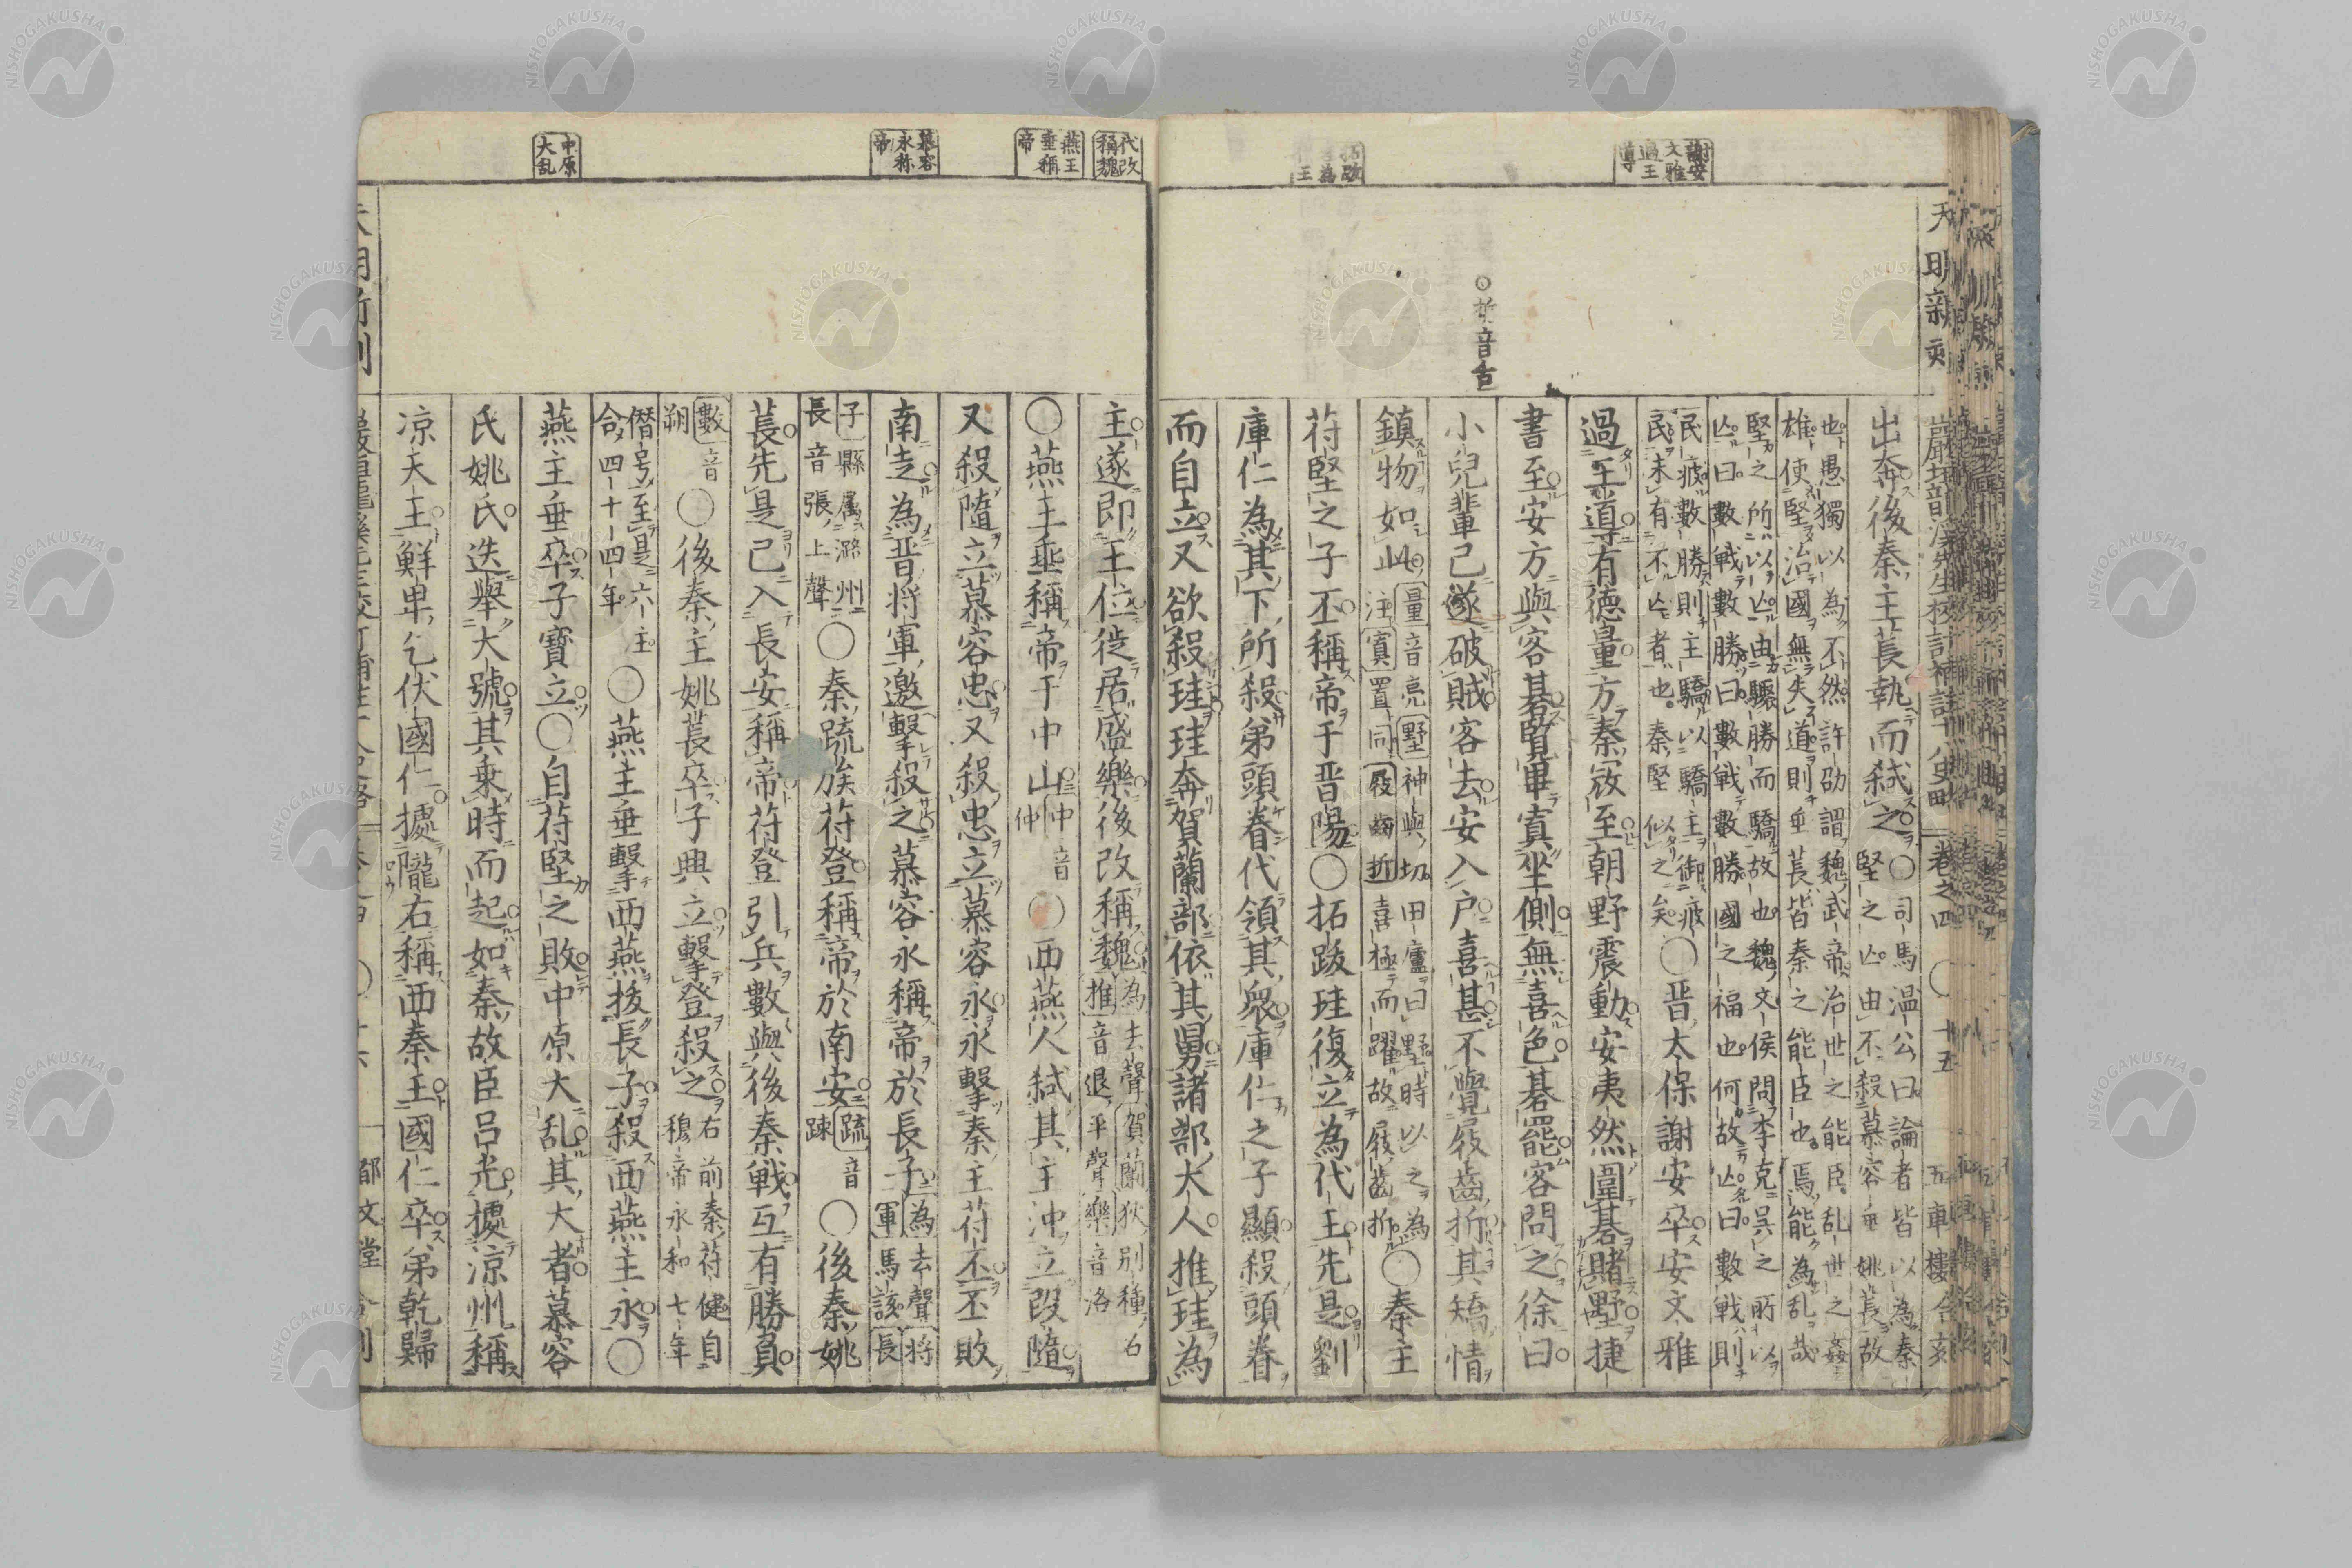 天明新刻
巌垣龍溪先生校訂補註十八史略 巻之四 〇 十五 五車樓合刻
謝安文雅過王導
拓跋珪為代王
〇折音舌
出奔後秦主萇執而弑之〇司馬温公曰論者皆以為秦堅之亾由不殺慕容垂姚萇故
也愚獨以為不然許劭謂魏武帝治世之能臣乱世之姦雄使堅治國無失道則垂萇皆秦之能臣也焉能為乱哉
堅之所以亾由驟勝而驕故也魏文侯問李克呉之所以亾曰數戦數勝曰數戦數勝國之福也何故亾曰數戦則
民疲數勝則主驕以驕主御疲民未有不亾者也秦堅似之矣〇晋太保謝安卒安文雅
過王導有德量方秦冦至朝野震動安夷然圍碁賭墅捷
書至安方與客碁覧畢寘坐側無喜色碁罷客問之徐曰
小兒輩已遂破賊客去安入户喜甚不覺屐齒折其矯情
鎮物如此量音亮墅神與切田廬曰墅時以之為注寘置同屐齒折喜極而躍故屐齒折〇秦主
苻堅之子丕稱帝于晋陽〇拓跋珪復立為代王先是劉
庫仁為其下所殺弟頭眷代領其衆庫仁之子顯殺頭眷
而自立又欲殺珪珪奔賀蘭部依其舅諸部大人推珪為
代改稱魏
燕王垂稱帝
慕容永称帝
中原大乱
主遂即王位徙居盛樂後改稱魏為去聲賀蘭狄別種名推音退平聲樂音洛
〇燕王垂稱帝于中山中音仲〇西燕人弑其主沖立段隨
又殺隨立慕容忠又殺忠立慕容永永擊秦主苻丕丕敗
南走為晋将軍邀擊殺之慕容永稱帝於長子為去聲将軍馬該長
子縣属潞州長音張上聲〇秦疏族苻登稱帝於南安疏音踈〇後秦姚
萇先是已入長安稱帝苻登引兵數與後秦戦互有勝負
數音朔〇後秦主姚萇卒子興立擊登殺之右前秦苻健自穆帝永和七年
僭号至是六主合四十四年〇燕主垂擊西燕抜長子殺西燕主永〇
燕主垂卒子寶立〇自苻堅之敗中原大乱其大者慕容
氏姚氏迭舉大號其乗時而起如秦故臣呂光據涼州稱
涼天王鮮卑乞伏國仁據隴右稱西秦王國仁卒弟乾歸